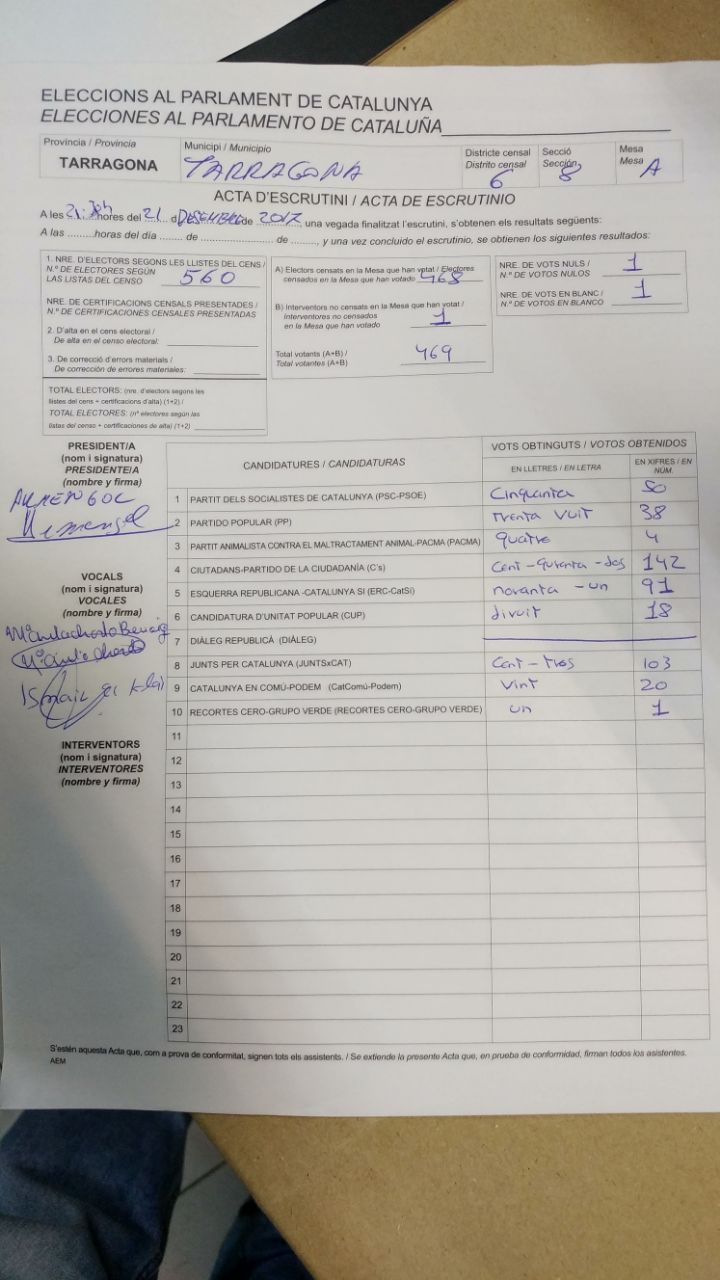 ELECCIONS AL PARLAMENT DE CATALUNYA
ELECCIONES AL PARLAMENTO DE CATALUÑA
Provincia / Provincia
TARRAGONA
Municipi / Municipio
TARRAGONA
Districte censal
Distrito censal
6
Secció
Sección
8
Mesa
Mesa
A
ACTA D'ESCRUTINI / ACTA DE ESCRUTINIO
A les 21:30h hores del 21 d DESEMBRE de 2017, una vegada finalitzat l'escrutini, s'obtenen els resultats següents:
A las .........horas del día ........ de ................................ de ........., y una vez concluido el escrutinio, se obtienen los siguientes resultados:
1. NRE. D'ELECTORS SEGONS LES LLISTES DEL CENS /
N.º DE ELECTORES SEGÚN
LAS LISTAS DEL CENSO 560
NRE. DE CERTIFICACIONS CENSALS PRESENTADES /
N.º DE CERTIFICACIONES CENSALES PRESENTADAS
2. D'alta en el cens electoral /
De alta en el censo electoral:
3. De correcció d'errors materials /
De corrección de errores materiales:
TOTAL ELECTORS: (nre. d'electors segons les
llistes del cens + certificacions d'alta) (1+2) /
TOTAL ELECTORES: (nº electores según las
listas del censo + certificaciones de alta) (1+2)
A) Electors censats en la Mesa que han votat / Electores
censados en la Mesa que han votado 468
B) Interventors no censats en la Mesa que han votat /
Interventores no censados
en la Mesa que han votado 1
Total votants (A+B) /
Total votantes (A+B) 469
NRE. DE VOTS NULS /
N.º DE VOTOS NULOS 1
NRE. DE VOTS EN BLANC /
N.º DE VOTOS EN BLANCO 1
PRESIDENT/A
(nom i signatura)
PRESIDENTE/A
(nombre y firma)
ARMENGOL
VOCALS
(nom i signatura)
VOCALES
(nombre y firma)
INTERVENTORS
(nom i signatura)
INTERVENTORES
(nombre y firma)
CANDIDATURES / CANDIDATURAS
VOTS OBTINGUTS / VOTOS OBTENIDOS
EN LLETRES / EN LETRA
EN XIFRES / EN NÚM.
1 PARTIT DELS SOCIALISTES DE CATALUNYA (PSC-PSOE) Cinquanta 50
2 PARTIDO POPULAR (PP) trenta vuit 38
3 PARTIT ANIMALISTA CONTRA EL MALTRACTAMENT ANIMAL-PACMA (PACMA) quatre 4
4 CIUTADANS-PARTIDO DE LA CIUDADANÍA (C's) Cent-quranta-dos 142
5 ESQUERRA REPUBLICANA -CATALUNYA SÍ (ERC-CatSí) noranta-un 91
6 CANDIDATURA D'UNITAT POPULAR (CUP) divuit 18
7 DIÀLEG REPUBLICÀ (DIÀLEG)
8 JUNTS PER CATALUNYA (JUNTSxCAT) Cent-tres 103
9 CATALUNYA EN COMÚ-PODEM (CatComú-Podem) Vint 20
10 RECORTES CERO-GRUPO VERDE (RECORTES CERO-GRUPO VERDE) un 1
11
12
13
14
15
16
17
18
19
20
21
22
23
S'estén aquesta Acta que, com a prova de conformitat, signen tots els assistents. / Se extiende la presente Acta que, en prueba de conformidad, firman todos los asistentes.
AEM